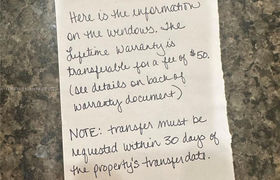 Here is the information
on the windows. The
Lifetime Warranty is
transferable for a fee of $50.
(see details on back of
warranty document)
NOTE: transfer must be
requested within 30 days of
the property's transfer date.